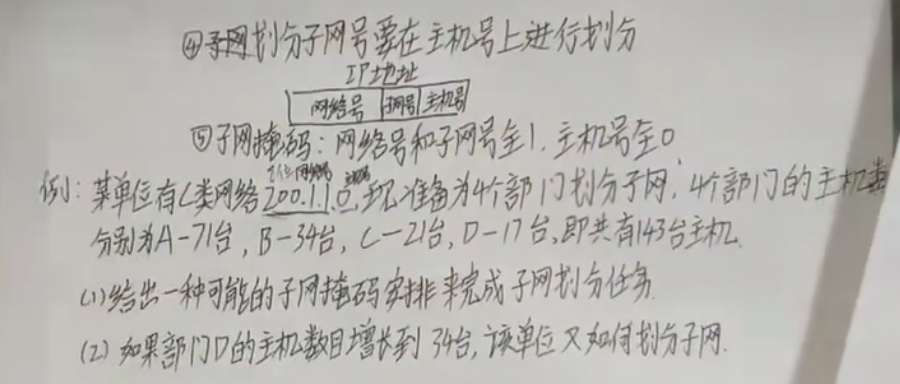 ④子网划分子网号要在主机号上进行划分
IP地址
网络号 子网号 主机号
⑤子网掩码：网络号和子网号全1，主机号全0
例：某单位有C类网络200.1.1.0，现准备为4个部门划分子网，4个部门的主机数
分别为A-71台，B-34台，C-21台，D-17台，即共有143台主机.
(1)给出一种可能的子网掩码安排来完成子网划分任务.
(2)如果部门D的主机数目增长到34台，该单位又如何划分子网.